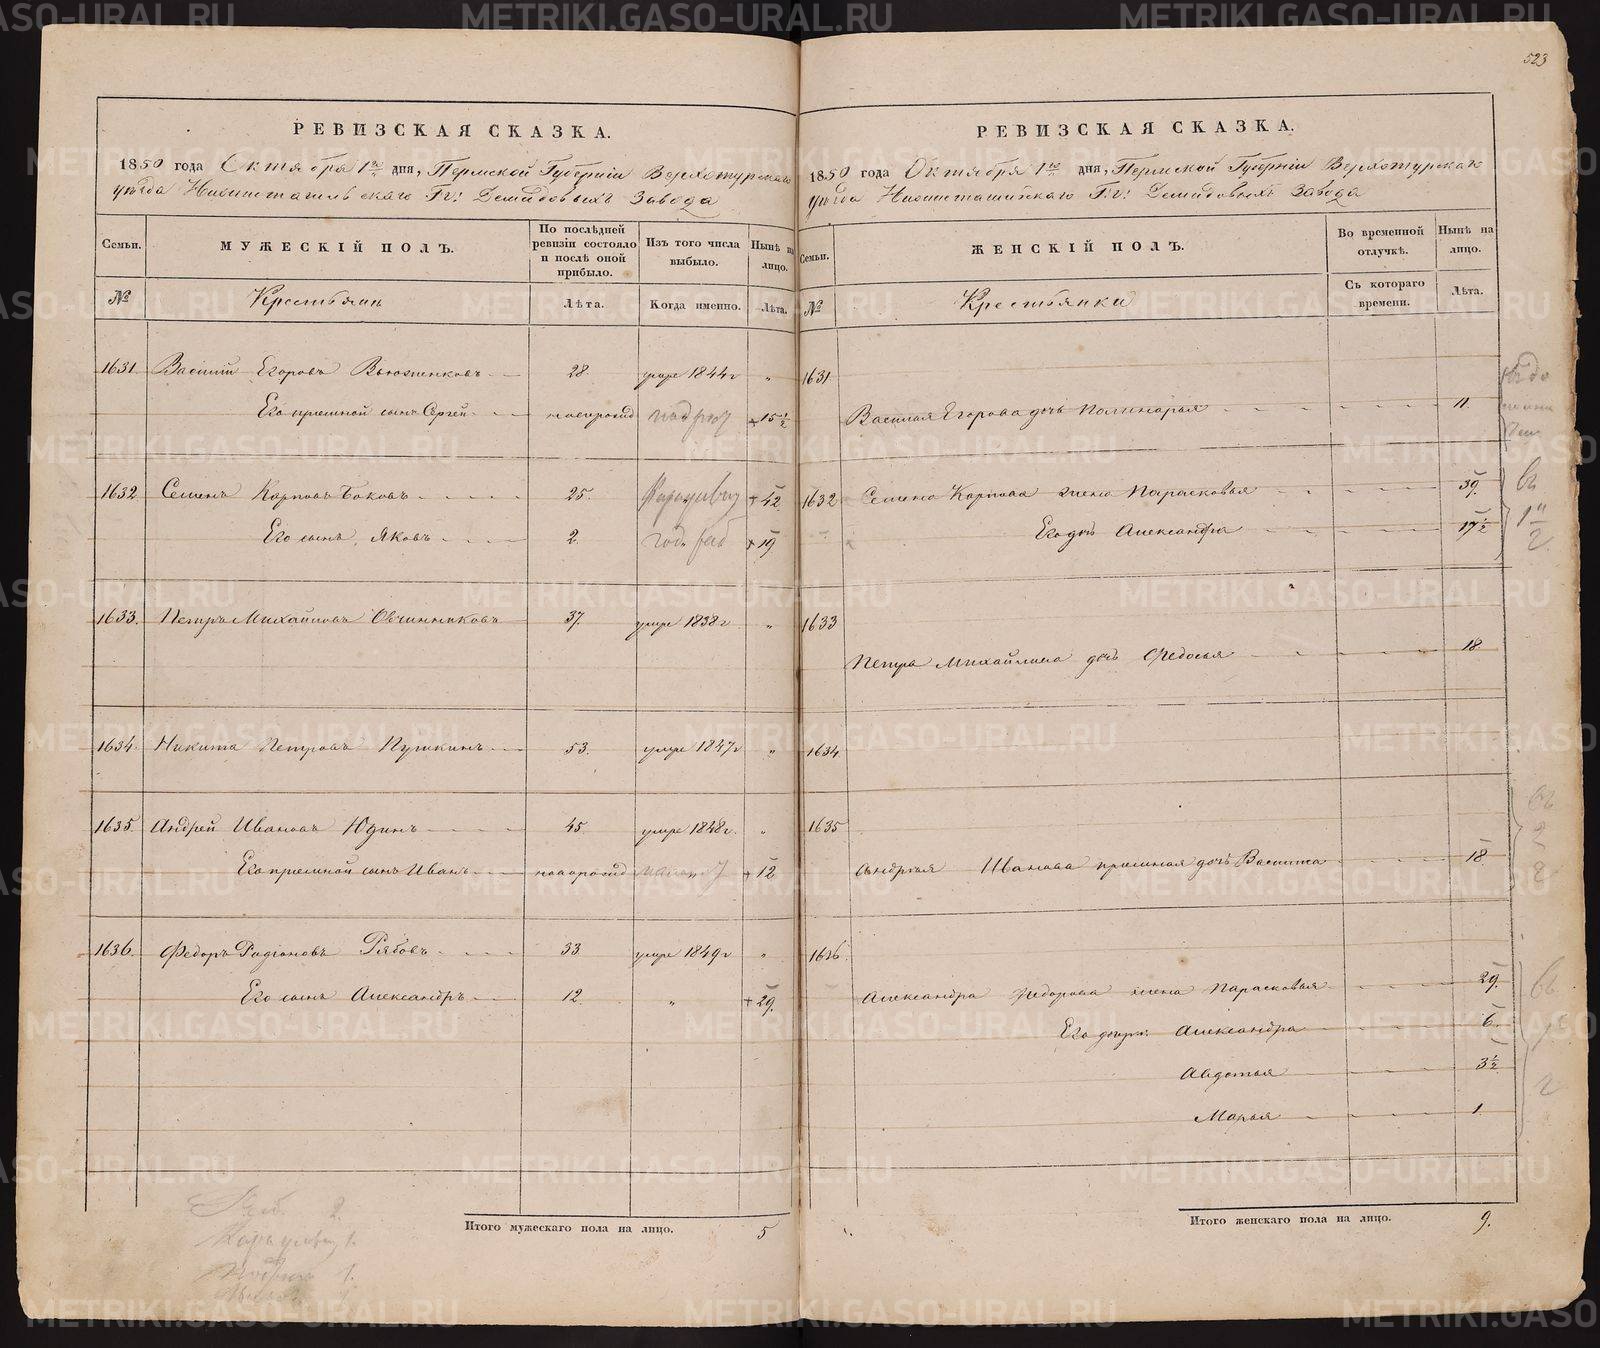 523
РЕВИЗСКАЯ СКАЗКА.
1850 года Октября 1го дня, Пермской Губерніи Верхотурскаго
уѣзда Нижнетагильскаго Гг: Демидовыхъ Завода
Семьи. МУЖЕСКІЙ ПОЛЪ. По послѣдней ревизіи состояло и послѣ оной прибыло. Изъ того числа выбыло. Нынѣ на лицо.
№ Крестьянъ Лѣта. Когда именно. Лѣта.
1631. Василій Егоровъ 28. умре 1844 г „
Его приемной сынъ Сергей новорожд 15 ½
1632 Семенъ Карповъ Боковъ 25. 42.
Его сынъ, Яковъ 2. 19
1633. Петръ Михайловъ Овчинниковъ 37. умре 1838 г „
1634. Никита Петровъ Пушкинъ 53. умре 1847 г „
1635. Андрей Ивановъ Юдинъ 45 умре 1848 г. „
Его приемной сынъ Иванъ новорожд 12
1636. Федоръ Радіоновъ Рябовъ 33. умре 1849 г „
Его сынъ Александръ 12. „ 29.
Итого мужескаго пола на лицо. 5
РЕВИЗСКАЯ СКАЗКА.
1850 года Октября 1го дня, Пермской Губерніи Верхотурскаго
уѣзда Нижнетагильскаго Гг: Демидовыхъ Завода
Семьи. ЖЕНСКІЙ ПОЛЪ. Во временной отлучкѣ. Нынѣ на лицо.
№ Крестьянки Съ котораго времени. Лѣта.
1631
Василья Егорова дочь Полинарья 11.
1632 Семена Карпова жена Парасковья 39.
Его дочь Александра 17 ½
1633
Петра Михайлова дочь Федосья 18
1634
1635
Андрея Иванова приемная дочь Васита 18
1636
Александра Федорова жена Парасковья 29.
Его дочери: Александра 6.
Авдотья 3 ½
Марья 1.
Итого женскаго пола на лицо. 9.
METRIKI.GASO-URAL.RU